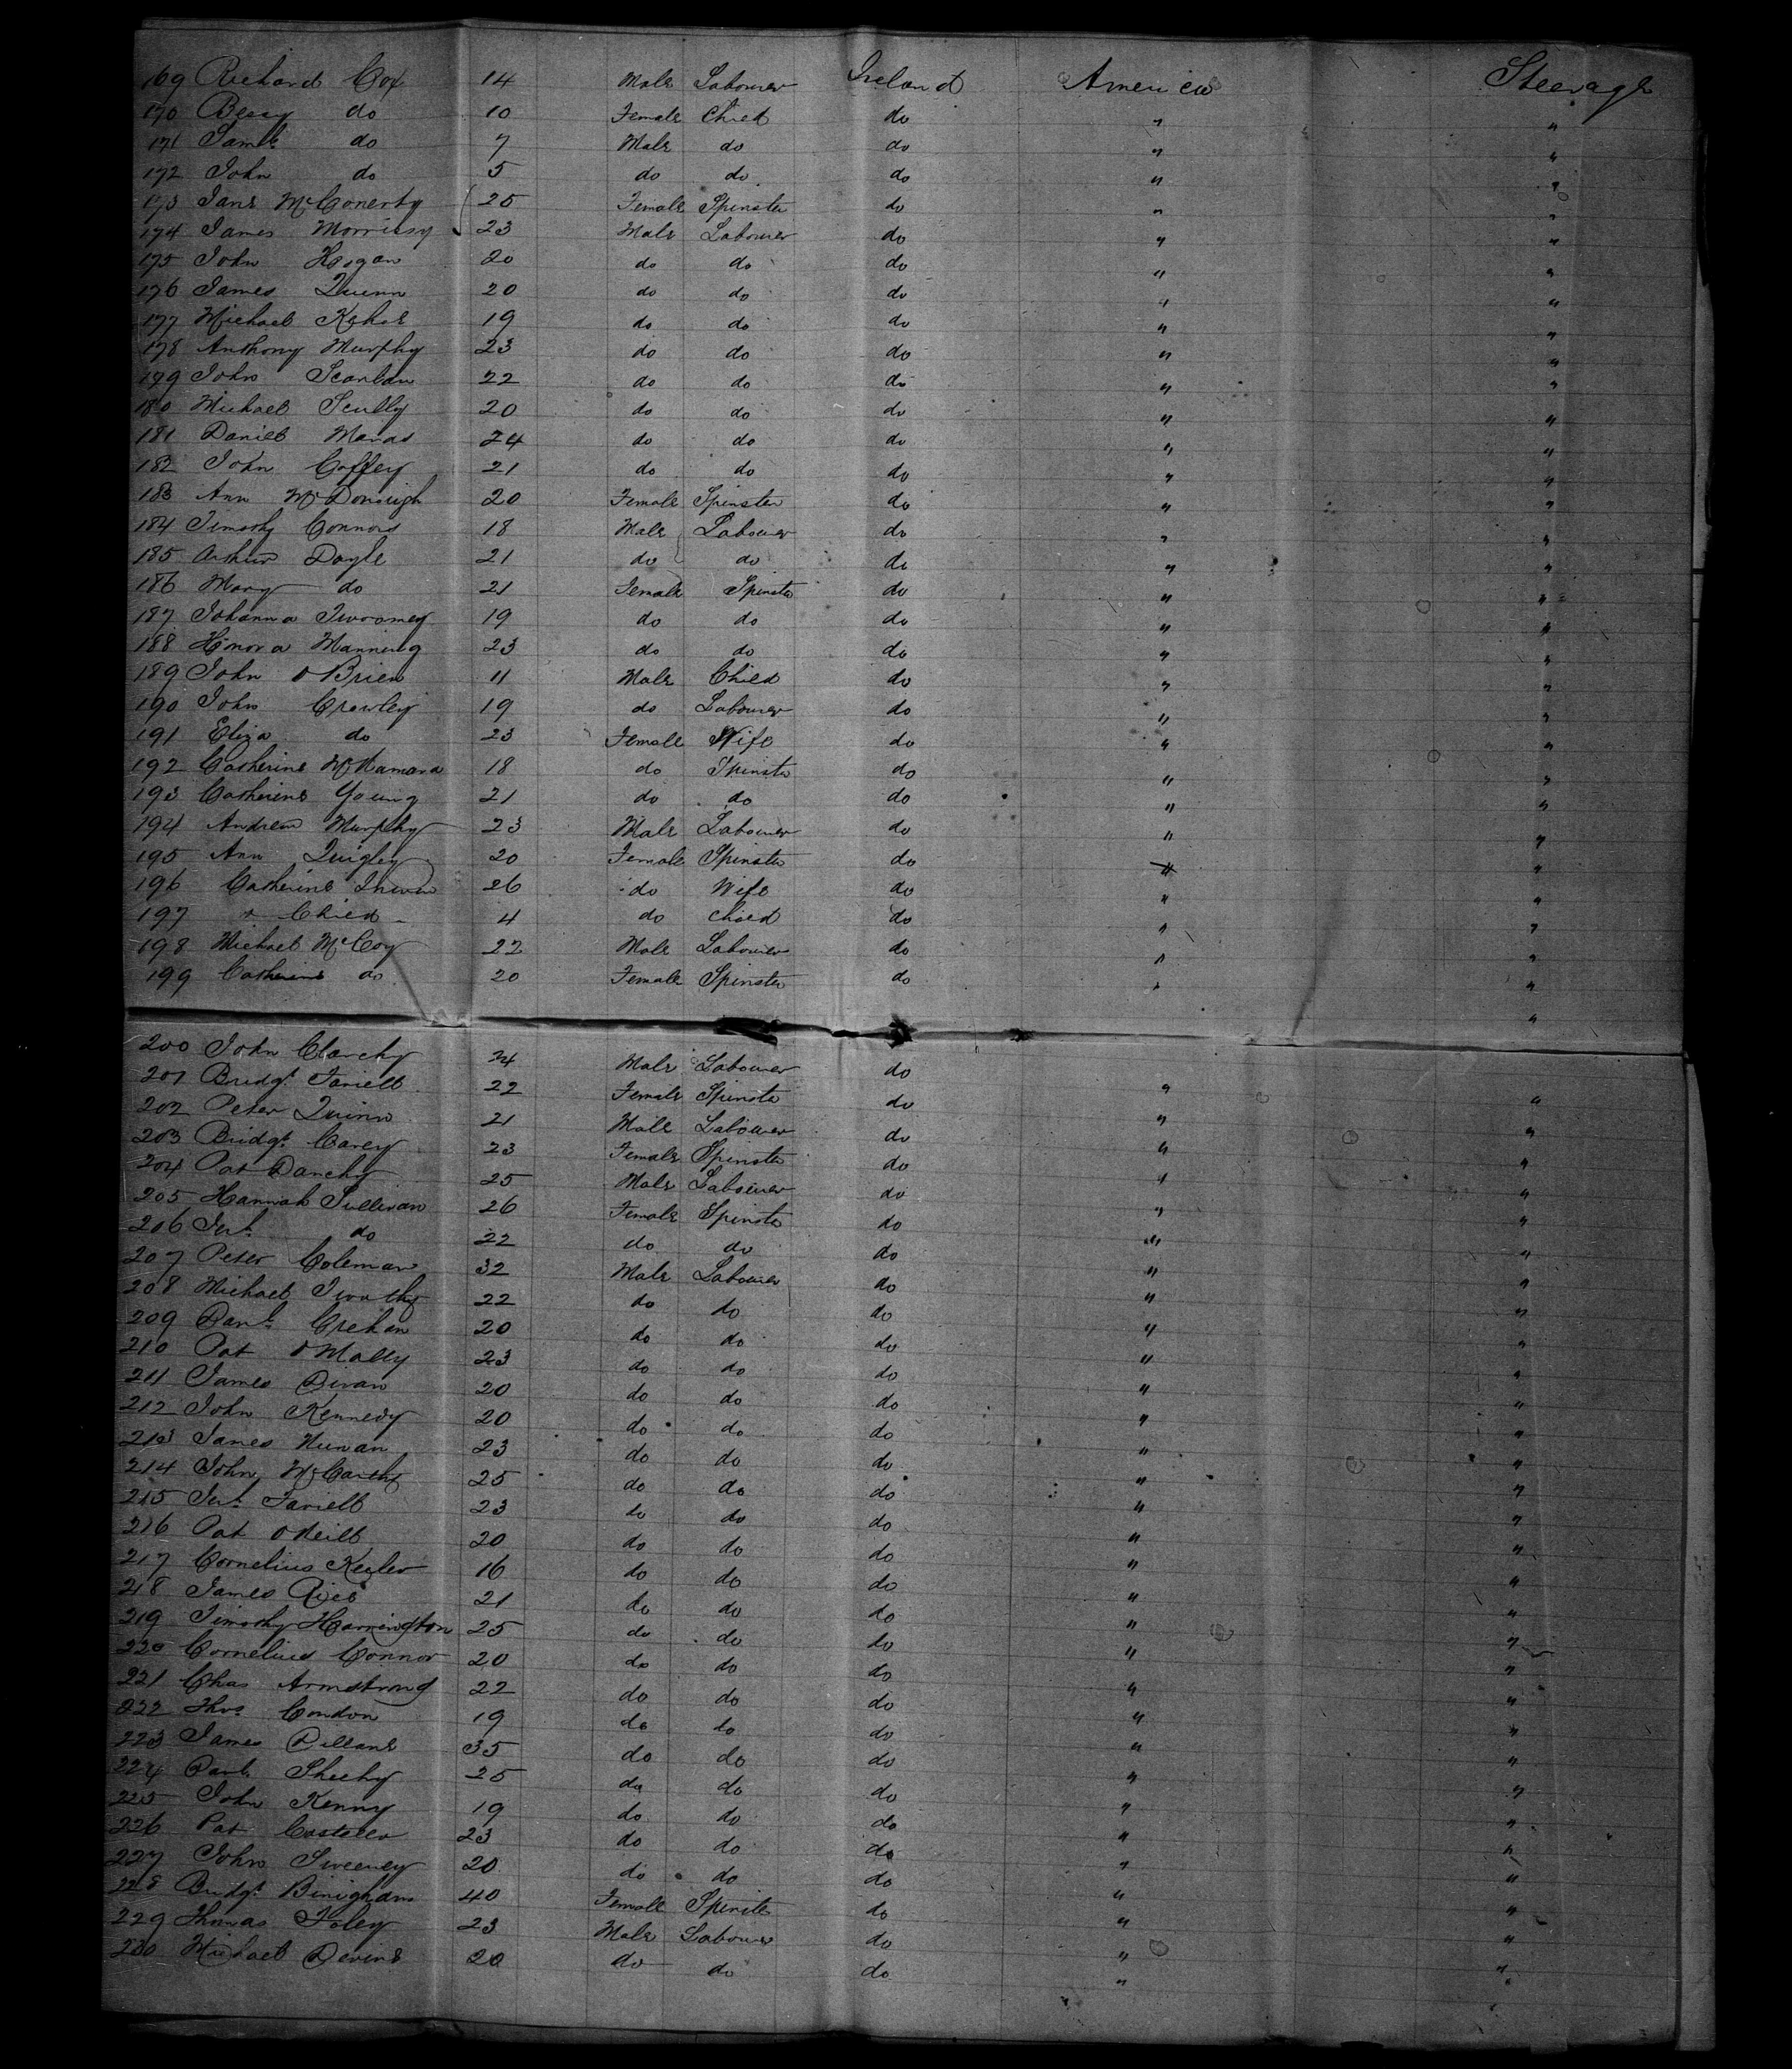 169 Richard Cox 14 Male Labourer Ireland America Steerage
170 Bessy do 10 Female Child do " "
171 Saml. do 7 Male do do " "
172 John do 5 do do do " "
173 Jane McConerty 25 Female Spinster do " "
174 James Morrissy 23 Male Labourer do " "
175 John Hogan 20 do do do " "
176 James Quinn 20 do do do " "
177 Michael 19 do do do " "
178 Anthony Murphy 23 do do do " "
179 John Scanlan 22 do do do " "
180 Michael Scully 20 do do do " "
181 Daniel 24 do do do " "
182 John Coffey 21 do do do " "
183 Ann McDonough 20 Female Spinster do " "
184 Timothy Connors 18 Male Labourer do " "
185 Arthur Doyle 21 do do do " "
186 Mary do 21 Female Spinster do " "
187 Johanna Twoomey 19 do do do " "
188 Honora Manning 23 do do do " "
189 John O Brien 11 Male Child do " "
190 John Crowley 19 do Labourer do " "
191 Eliza do 23 Female Wife do " "
192 Catherine McNamara 18 do Spinster do " "
193 Catherine Young 21 do do do " "
194 Andrew Murphy 23 Male Labourer do " "
195 Ann Quigley 20 Female Spinster do " "
196 Catherine 26 do Wife do " "
197 & Child 4 do Child do " "
198 Michael McCoy 22 Male Labourer do " "
199 Catherine do 20 Female Spinster do " "
200 John Clanchy 24 Male Labourer do " "
201 Bridgt. Farrell 22 Female Spinster do " "
202 Peter Quinn 21 Male Labourer do " "
203 Bridgt. Carey 23 Female Spinster do " "
204 Pat Danchy 25 Male Labourer do " "
205 Hannah Sullivan 26 Female Spinster do " "
206 do 22 do do do " "
207 Peter Coleman 32 Male Labourer do " "
208 Michael 22 do do do " "
209 Danl. Crehan 20 do do do " "
210 Pat O Mally 23 do do do " "
211 James Divan 20 do do do " "
212 John Kennedy 20 do do do " "
213 James Nunan 23 do do do " "
214 John McCarthy 25 do do do " "
215 Jerh. Farrell 23 do do do " "
216 Pat O Neill 20 do do do " "
217 Cornelius 16 do do do " "
218 James Rice 21 do do do " "
219 Timothy Harrington 25 do do do " "
220 Cornelius Connor 20 do do do " "
221 Chas Armstrong 22 do do do " "
222 Thos. Condon 19 do do do " "
223 James Dillane 35 do do do " "
224 Danl. Sheehy 25 do do do " "
225 John Kenny 19 do do do " "
226 Pat Costello 23 do do do " "
227 John Sweeney 20 do do do " "
228 Bridgt. Binigham 40 Female Spinster do " "
229 Thomas Foley 23 Male Labourer do " "
230 Michael Devine 20 do do do " "